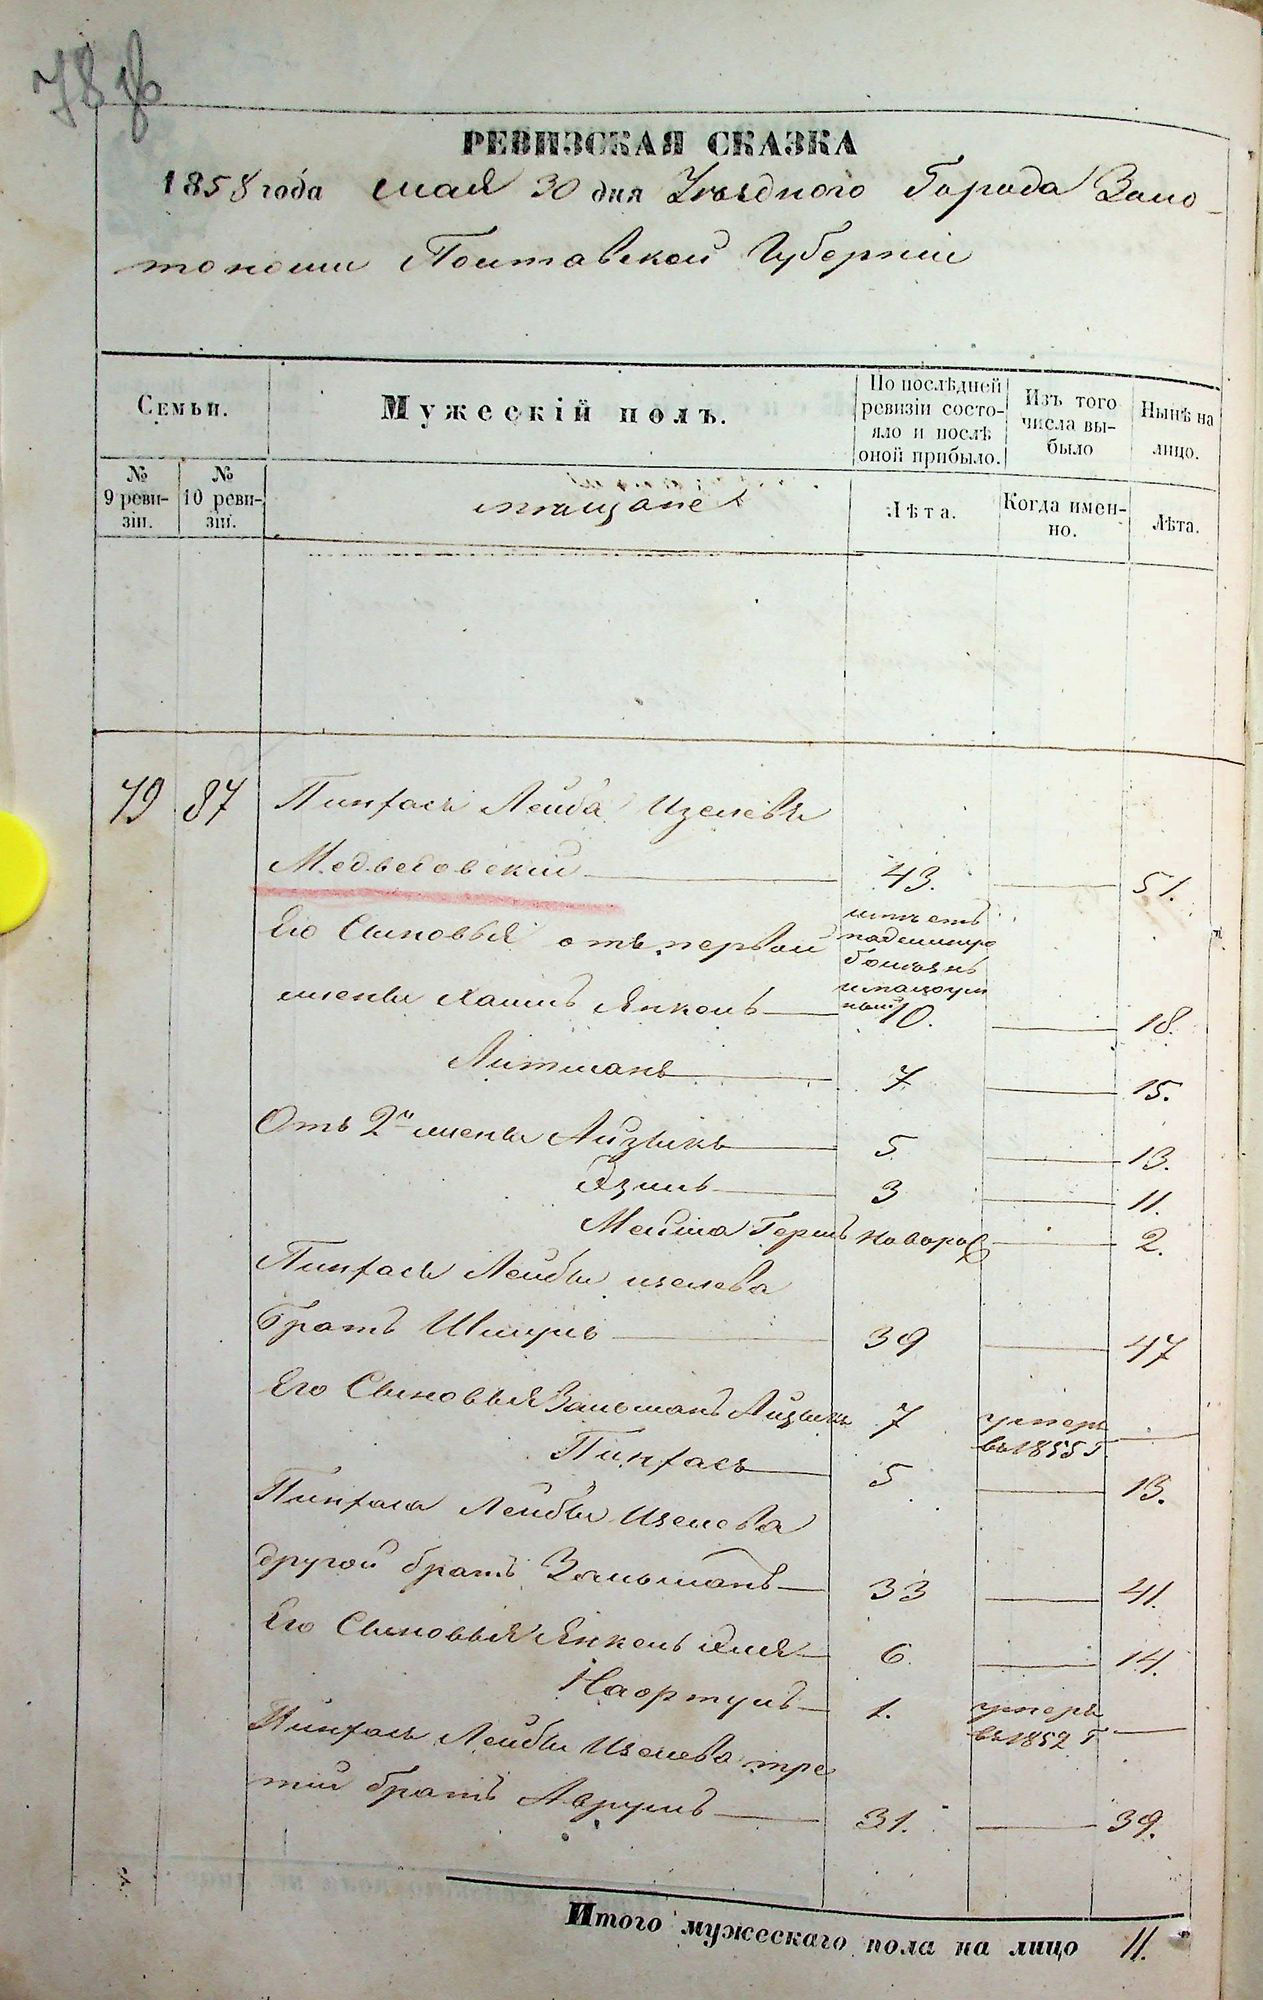 78 об
РЕВИЗСКАЯ СКАЗКА
1858 года мая 30 дня Уѣзднаго Города Золо-
тоноши Полтавской Губерніи
Семьи.
Мужескій полъ.
По послѣдней ревизіи состо-яло и послѣ оной прибыло.
Изъ того числа вы-было
Нынѣ на лицо.
№ 9 реви-зіи.
№ 10 реви-зіи.
мѣщане
Лѣта.
Когда имен-но.
Лѣта.
79 87 Пинхасъ Лейба Изелевъ
Медведовскій 43. 51.
Его Сыновья отъ первой
жены Хаимъ Янкель 10. 18.
имѣетъ
падешную
болѣзнь
Литманъ 7 15.
Отъ 2й жены Айзыкъ 5 13.
Зузль 3 11.
Мейша Гершъ новорож 2.
Пинхаса Лейбы Изелева
братъ Шмуль 39 47
Его Сыновья Зальманъ Айзыкъ 7 умеръ въ 1855 г.
Пинхасъ 5 13.
Пинхаса Лейбы Изелева
другой братъ Зельманъ 33 41.
Его Сыновья Янкель Эля 6 14.
1. умеръ въ 1852 г.
Пинхаса Лейбы Изелева тре
тій братъ Аврумъ 31. 39.
Итого мужескаго пола на лицо 11.